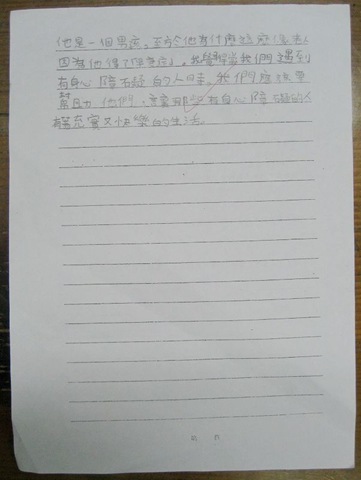 他是一個男孩,至於他為什麼這麼
因為他得了 症」。我覺得當我們遇到
有身心障礙的人時,我們應該要
幫助他們,讓那些有身心障礙的人
有充實又快樂的生活。